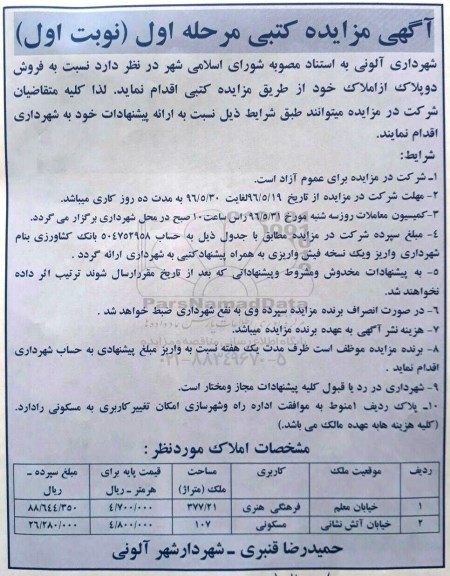 آگهی مزایده کتبی مرحله اول (نوبت اول)
شهرداری آلونی به استناد مصوبه شورای اسلامی شهر در نظر دارد نسبت به فروش
دوپلاک ازاملاک خود از طریق مزایده کتبی اقدام نماید. لذا کلیه متقاضیان
شرکت در مزایده میتوانند طبق شرایط ذیل نسبت به ارائه پیشنهادات خود به شهرداری
اقدام نمایند.
شرایط:
۱ـ شرکت در مزایده برای عموم آزاد است.
۲- مهلت شرکت در مزایده از تاریخ ۹۶/۵/۱۹ لغایت ۹۶/۵/۳۰ به مدت ده روز کاری میباشد.
۳-کمیسیون معاملات روزسه شنبه مورخ ۹۶/۵/۳۱ راس ساعت ۱۰ صبح در محل شهرداری برگزار می گردد.
۴- مبلغ سپرده شرکت در مزایده مطابق با جدول ذیل به حساب ۵۰۴۷۵۲۹۵۸ بانک کشاورزی بنام
شهرداری واریز ویک نسخه فیش واریزی به همراه پیشنهادکتبی به شهرداری ارائه گردد .
۵- به پیشنهادات مخدوش ومشروط وپیشنهاداتی که بعد از تاریخ مقررارسال شوند ترتیب اثر داده
نخواهند شد.
۶- در صورت انصراف برنده مزایده سپرده وی به نفع شهرداری ضبط خواهد شد .
۷- هزینه نشر آگهی به عهده برنده مزایده میباشد.
۸- برنده مزایده موظف است ظرف مدت یک هفته نسبت به واریز مبلغ پیشنهادی به حساب شهرداری
اقدام نماید .
۹- شهرداری در رد یا قبول کلیه پیشنهادات مجاز ومختار است.
۱۰ـ پلاک ردیف ۱منوط به موافقت اداره راه وشهرسازی امکان تغییرکاربری به مسکونی رادارد.
(کلیه هزینه هابه عهده مالک می باشد.)
مشخصات املاک موردنظر :
ردیف موقعیت ملک کاربری مساحت ملک (متراژ) قیمت پایه برای هرمتر ـ ریال مبلغ سپرده ـ ریال
۱ خیابان معلم فرهنگی هنری ۳۷۷/۲۱ ۴/۷۰۰/۰۰۰ ۸۸/۶۴۴/۳۵۰
۲ خیابان آتش نشانی مسکونی ۱۰۷ ۴/۸۰۰/۰۰۰ ۲۶/۲۸۰/۰۰۰
حمیدرضا قنبری ـ شهردارشهر آلونی
ParsNamadData
۰۲۱-۸۸۳۴۹۶۷۰-۵